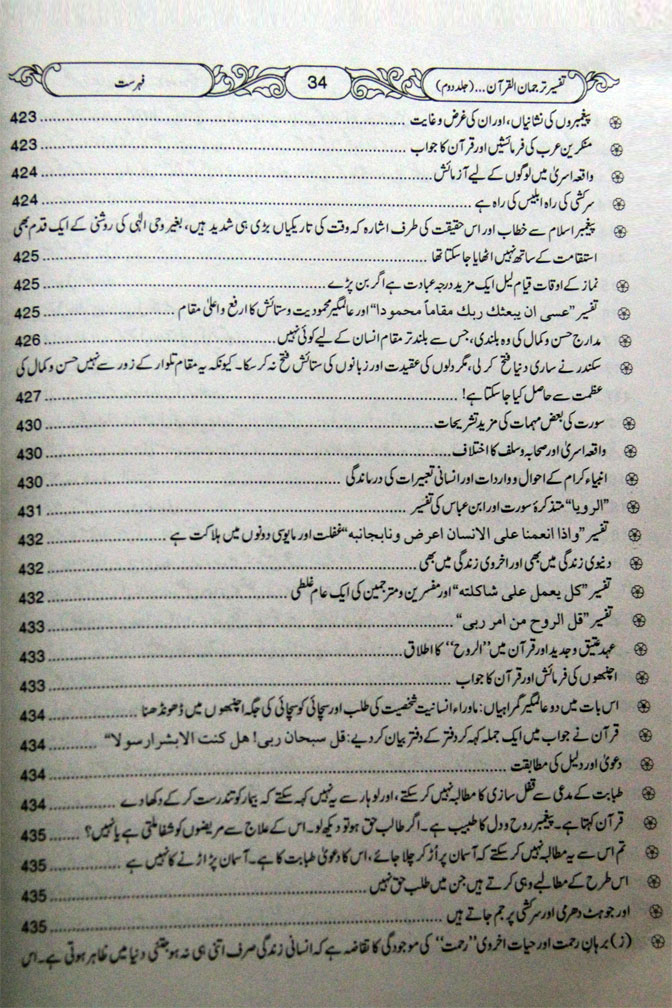 تفسیر ترجمان القرآن ... (جلد دوم) 34 فہرست
پیغمبروں کی نشانیاں، اور ان کی غرض و غایت ... 423
منکرین عرب کی فرمائشیں اور قرآن کا جواب ... 423
واقعہ اسریٰ میں لوگوں کے لیے آزمائش ... 424
سرکشی کی راہ ابلیس کی راہ ہے ... 424
پیغمبر اسلام سے خطاب اور اس حقیقت کی طرف اشارہ کہ وقت کی تاریکیاں بڑی ہی شدید ہیں، بغیر وحی الٰہی کی روشنی کے ایک قدم بھی
استقامت کے ساتھ نہیں اٹھایا جا سکتا تھا ... 425
نماز کے اوقات قیام لیل ایک مزید درجہ عبادت ہے اگر بن پڑے ... 425
تفسیر ”عسى ان يبعثك ربك مقاماً محمودا“ اور عالمگیر محمودیت و ستائش کا ارفع و اعلیٰ مقام ... 425
مدارج حسن و کمال کی وہ بلندی، جس سے بلند تر مقام انسان کے لیے کوئی نہیں ... 426
سکندر نے ساری دنیا فتح کر لی، مگر دلوں کی عقیدت اور زبانوں کی ستائش فتح نہ کر سکا۔ کیونکہ یہ مقام تلوار کے زور سے نہیں حسن و کمال کی
عظمت سے حاصل کیا جا سکتا ہے! ... 427
سورت کی بعض مہمات کی مزید تشریحات ... 430
واقعہ اسریٰ اور صحابہ و سلف کا اختلاف ... 430
انبیاء کرام کے احوال و واردات اور انسانی تعبیرات کی درماندگی ... 430
”الرویا“ متذکرۂ سورت اور ابن عباس کی تفسیر ... 431
تفسیر ”واذا انعمنا على الانسان اعرض ونابجانبه“ غفلت اور مایوسی دونوں میں ہلاکت ہے ... 432
دنیوی زندگی میں بھی اور اخروی زندگی میں بھی ... 432
تفسیر ”كل يعمل على شاكلته“ اور مفسرین و مترجمین کی ایک عام غلطی ... 432
تفسیر ”قل الروح من امر ربى“ ... 433
عہد عتیق و جدید اور قرآن میں ”الروح“ کا اطلاق ... 433
اچنبھوں کی فرمائش اور قرآن کا جواب ... 433
اس بات میں دو عالمگیر گمراہیاں: ماوراء انسانیت شخصیت کی طلب اور سچائی کو سچائی کی جگہ اچنبھوں میں ڈھونڈھنا ... 434
قرآن نے جواب میں ایک جملہ کہہ کر دفتر کے دفتر بیان کر دیے: قل سبحان ربى! هل كنت الا بشرا رسولا“ ... 434
دعویٰ اور دلیل کی مطابقت ... 434
طبابت کے مدعی سے قفل سازی کا مطالبہ نہیں کر سکتے، اور لوہار سے یہ نہیں کہہ سکتے کہ بیمار کو تندرست کر کے دکھا دے ... 434
قرآن کہتا ہے۔ پیغمبر روح و دل کا طبیب ہے۔ اگر طالب حق ہو تو دیکھ لو۔ اس کے علاج سے مریضوں کو شفا ملتی ہے یا نہیں؟ ... 435
تم اس سے یہ مطالبہ نہیں کر سکتے کہ آسمان پر اُڑ کر چلا جائے، اس کا دعویٰ طبابت کا ہے۔ آسمان پر اڑنے کا نہیں ہے ... 435
اس طرح کے مطالبے وہی کرتے ہیں جن میں طلب حق نہیں ... 435
اور جو ہٹ دھرمی اور سرکشی پر جم جاتے ہیں ... 435
(ز) برہان رحمت اور حیات اخروی ”رحمت“ کی موجودگی کا تقاضہ ہے کہ انسانی زندگی صرف اتنی ہی نہ ہو جتنی دنیا میں ظاہر ہوتی ہے۔ اس